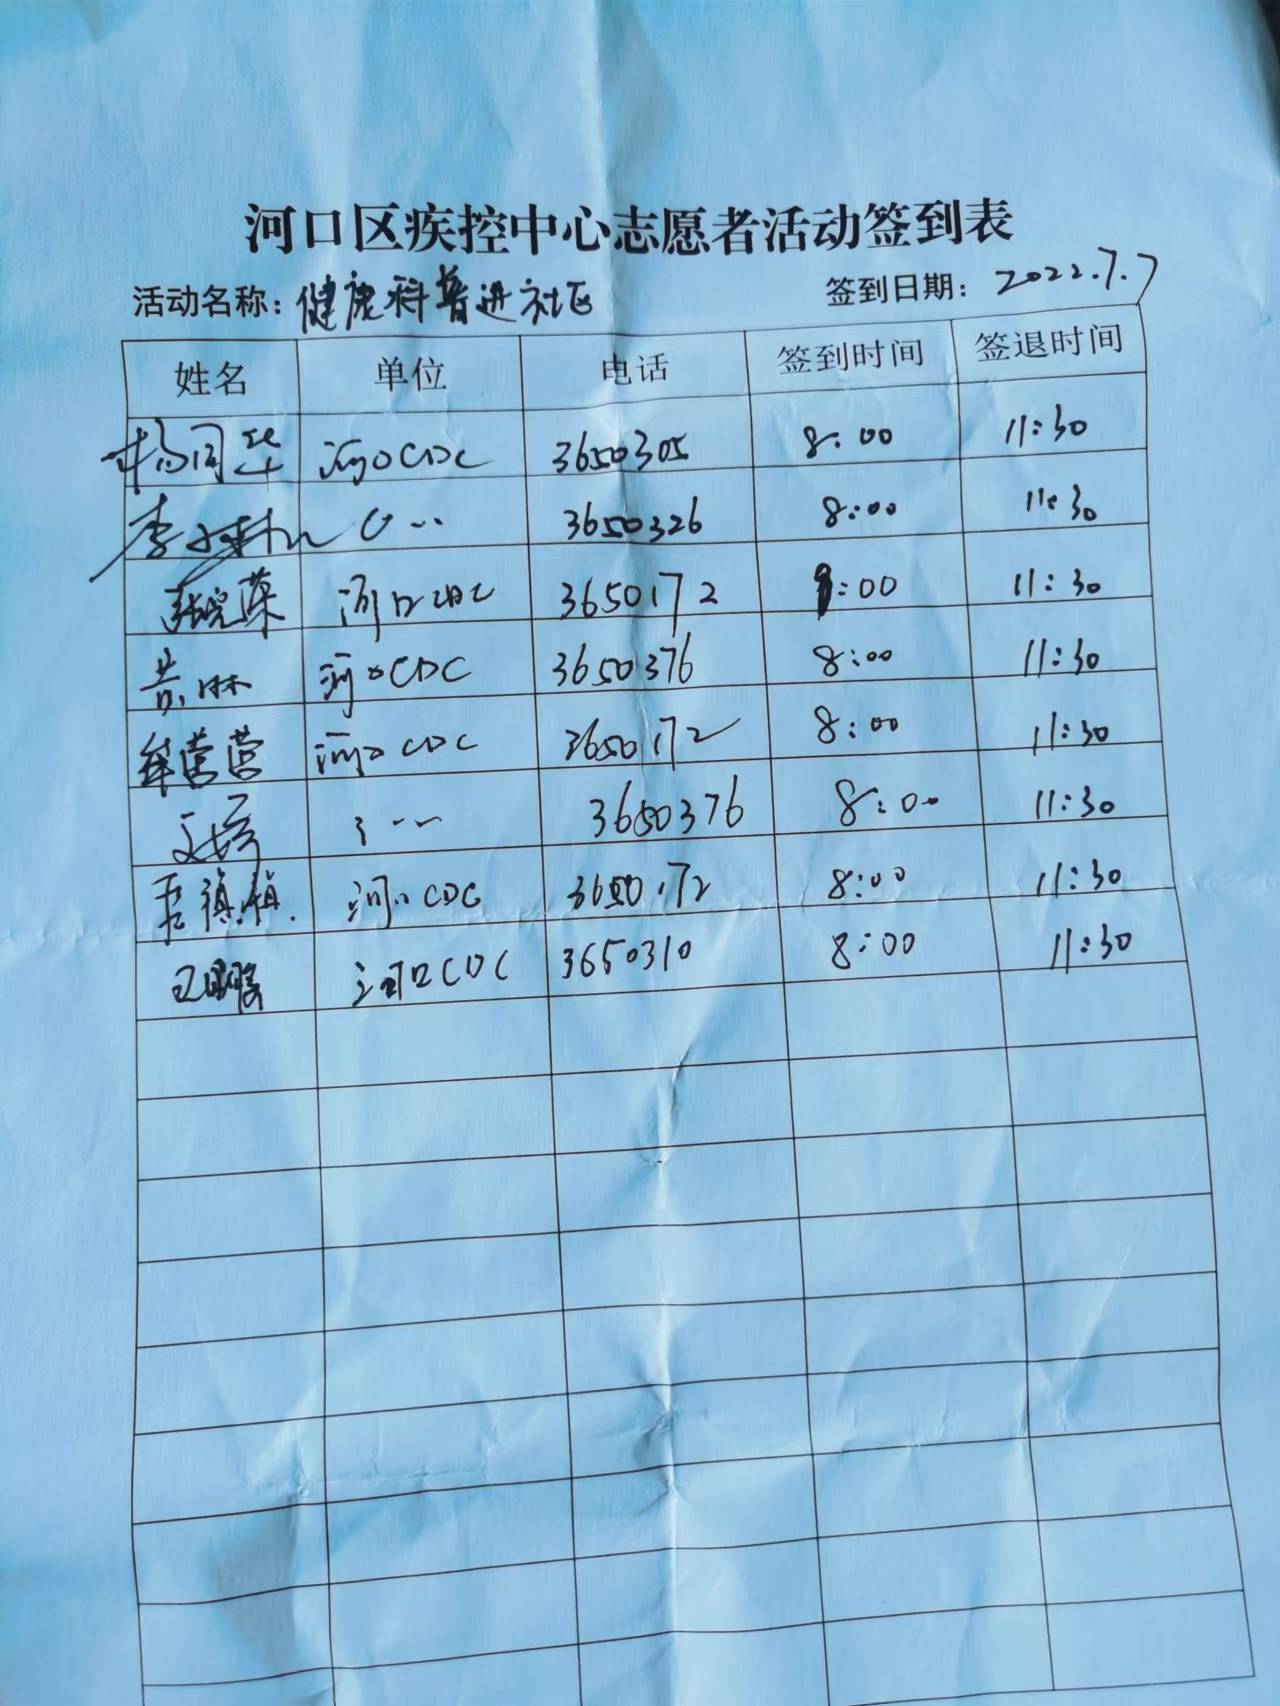 河口区疾控中心志愿者活动签到表
活动名称：健康科普进社区 签到日期：2022.7.7
姓名 单位 电话 签到时间 签退时间
杨同华 河口CDC 3650305 8:00 11:30
李 〃 3650326 8:00 11:30
张晓蕖 河口CDC 3650172 8:00 11:30
黄琳 河口CDC 3650376 8:00 11:30
薛营营 河口CDC 3650172 8:00 11:30
〃 3650376 8:00 11:30
河口CDC 3650172 8:00 11:30
王鹏 河口CDC 3650310 8:00 11:30